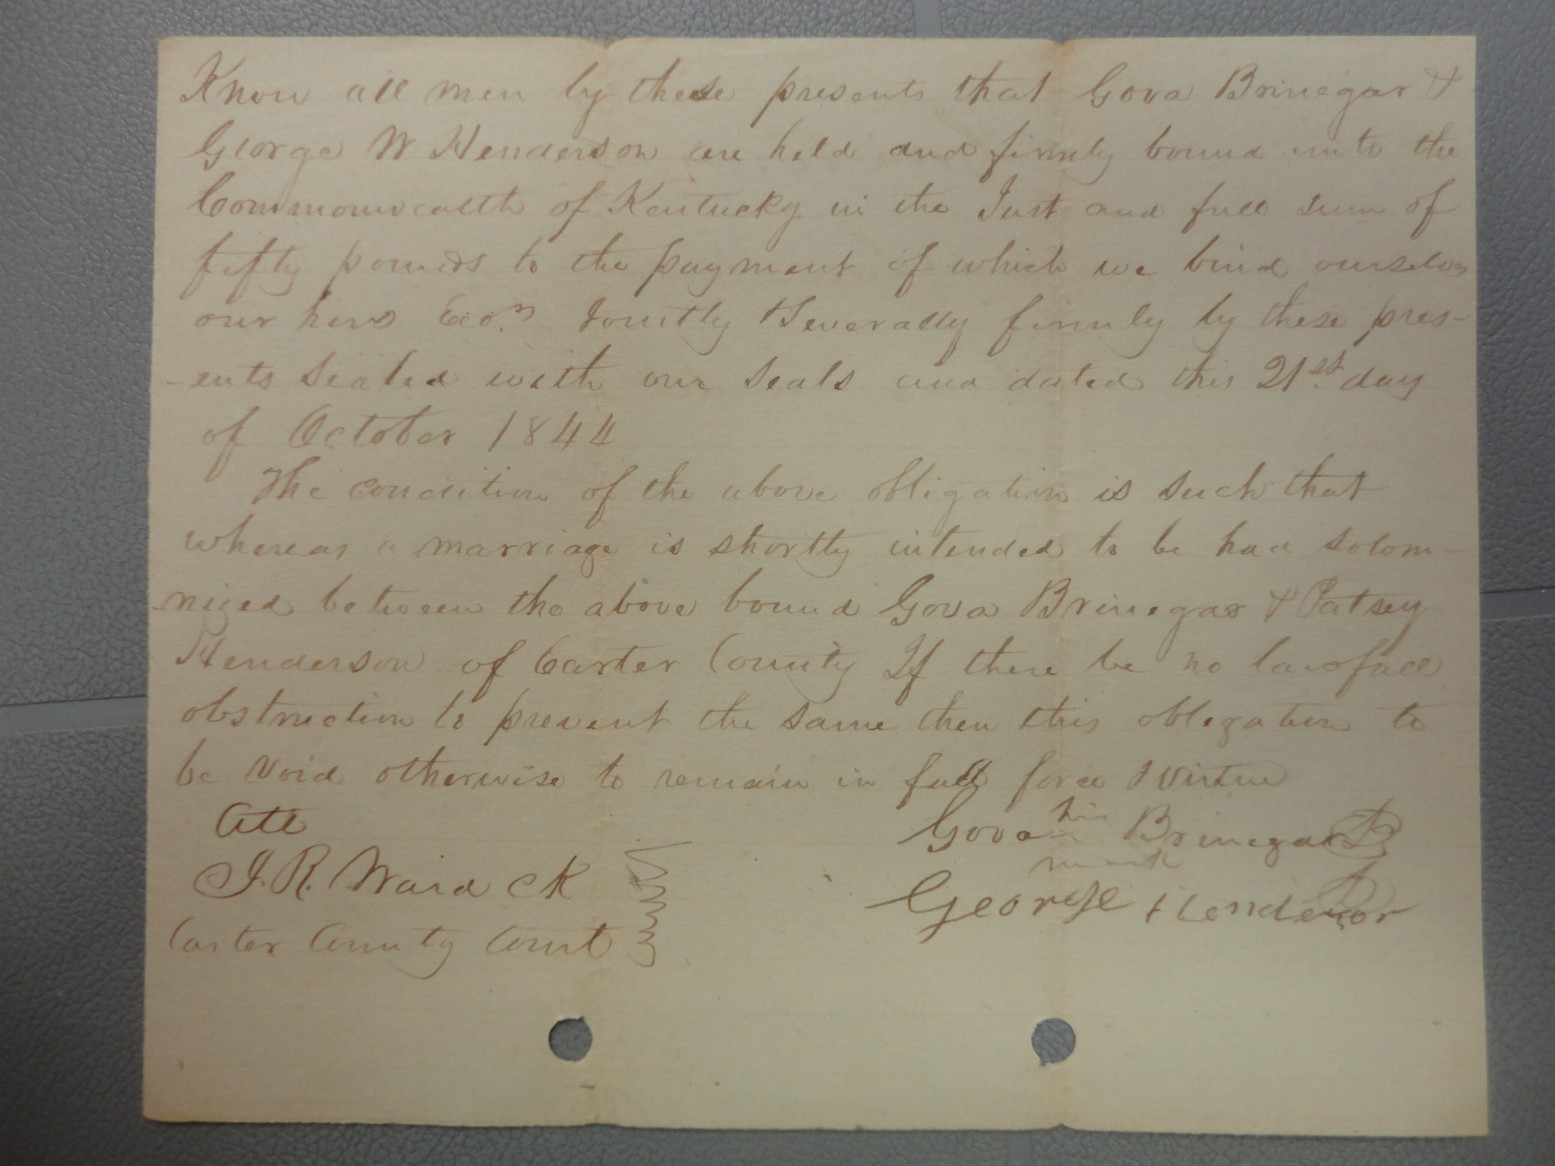 Know all men by these presents that Gova Brinegar &
George W Henderson are held and firmly bound unto the
Commonwealth of Kentucky in the Just and full sum of
fifty pounds to the payment of which we bind ourselves
our heirs Jointly & Severally firmly by these pres-
-ents Sealed with our Seals and dated this 21st day
of October 1844
The condition of the above obligation is such that
whereas a marriage is shortly intended to be had solom-
-nized between the above bound Gova Brinegar & Patsey
Henderson of Carter County If there be no lawfull
obstruction to prevent the same then this obligation to
be void otherwise to remain in full force & Virtue
Att
Gova his Brinegar
mark
J. R. Ward CK
George Henderson
Carter County Court